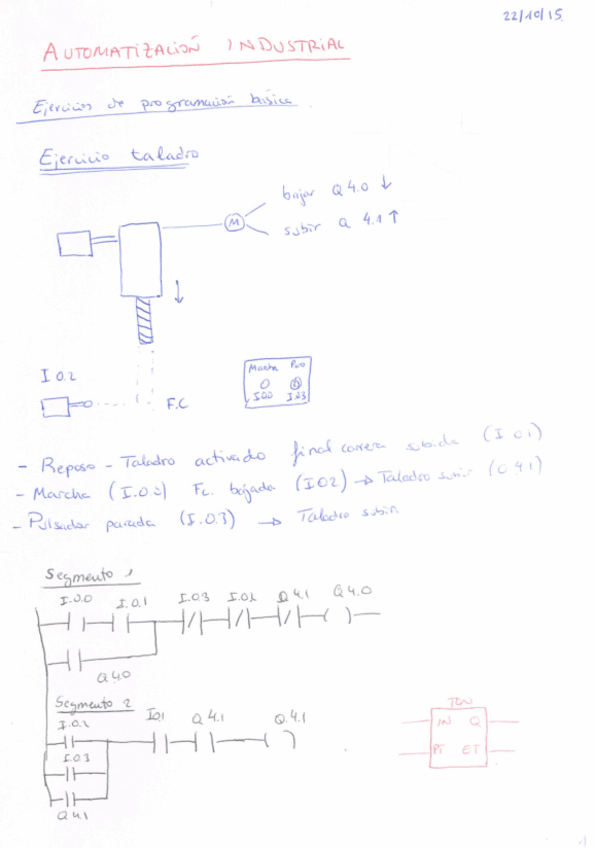 22/10/15
AUTOMATIZACIÓN INDUSTRIAL
Ejercicios de programación básica.
Ejercicio taladro
bajar Q 4.0 ↓
M
subir Q 4.1 ↑
I 0.2
F.C
Marcha Paro
I0.0 I0.3
- Reposo - Taladro activado final carrera subida (I 0.1)
- Marcha (I.0.0) Fc. bajada (I0.2) → Taladro subir (Q 4.1)
- Pulsador parada (I.0.3) → Taladro subir.
Segmento 1
I.0.0 I.0.1 I.0.3 I.0.2 Q4.1 Q4.0
Q4.0
Segmento 2
I.0.2 I0.1 Q4.1 Q.4.1
I.0.3
Q4.1
TON
IN Q
PT ET
1